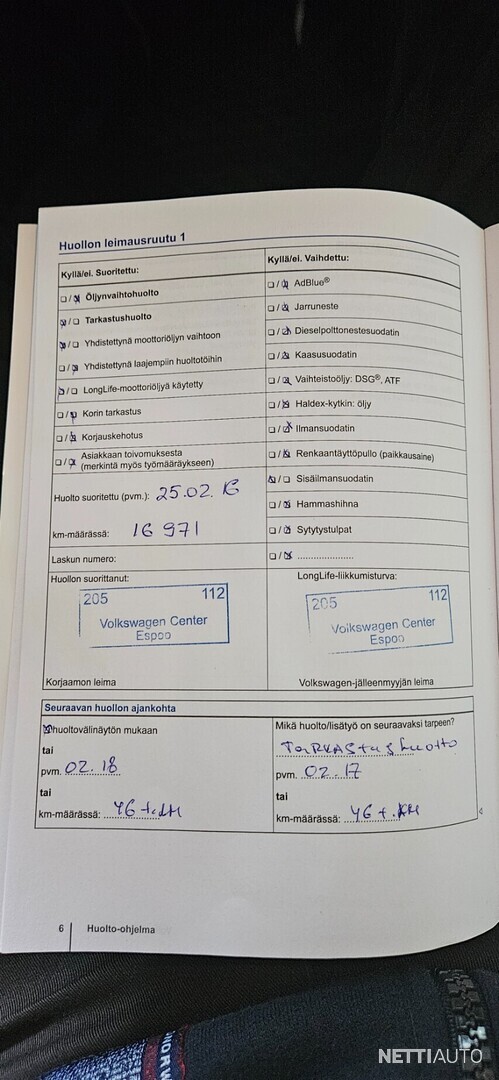 Huollon leimausruutu 1
Kyllä/ei. Suoritettu:
Öljynvaihtohuolto
Tarkastushuolto
Yhdistettynä moottoriöljyn vaihtoon
Yhdistettynä laajempiin huoltotöihin
LongLife-moottoriöljyä käytetty
Korin tarkastus
Korjauskehotus
Asiakkaan toivomuksesta
(merkintä myös työmääräykseen)
Huolto suoritettu (pvm.): 25.02.16
km-määrässä: 16 971
Laskun numero:
Huollon suorittanut:
205 112
Volkswagen Center
Espoo
Korjaamon leima
Kyllä/ei. Vaihdettu:
AdBlue®
Jarruneste
Dieselpolttonestesuodatin
Kaasusuodatin
Vaihteistoöljy: DSG®, ATF
Haldex-kytkin: öljy
Ilmansuodatin
Renkaantäyttöpullo (paikkausaine)
Sisäilmansuodatin
Hammashihna
Sytytystulpat
LongLife-liikkumisturva:
205 112
Volkswagen Center
Espoo
Volkswagen-jälleenmyyjän leima
Seuraavan huollon ajankohta
huoltovälinäytön mukaan
tai
pvm. 02.18
tai
km-määrässä: 46 t.km
Mikä huolto/lisätyö on seuraavaksi tarpeen?
Tarkastushuolto
pvm. 02.17
tai
km-määrässä: 46 t.km
6 Huolto-ohjelma
NETTIAUTO